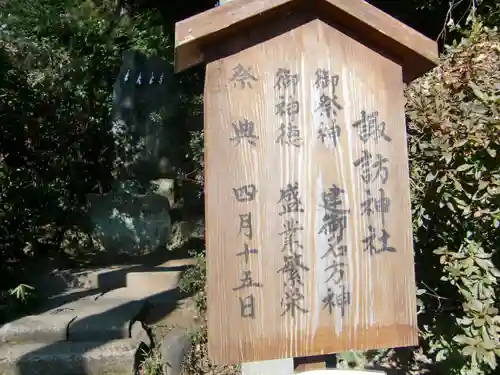 諏訪神社
御祭神 建御名方神
御神徳 盛業繁栄
祭典 四月十五日